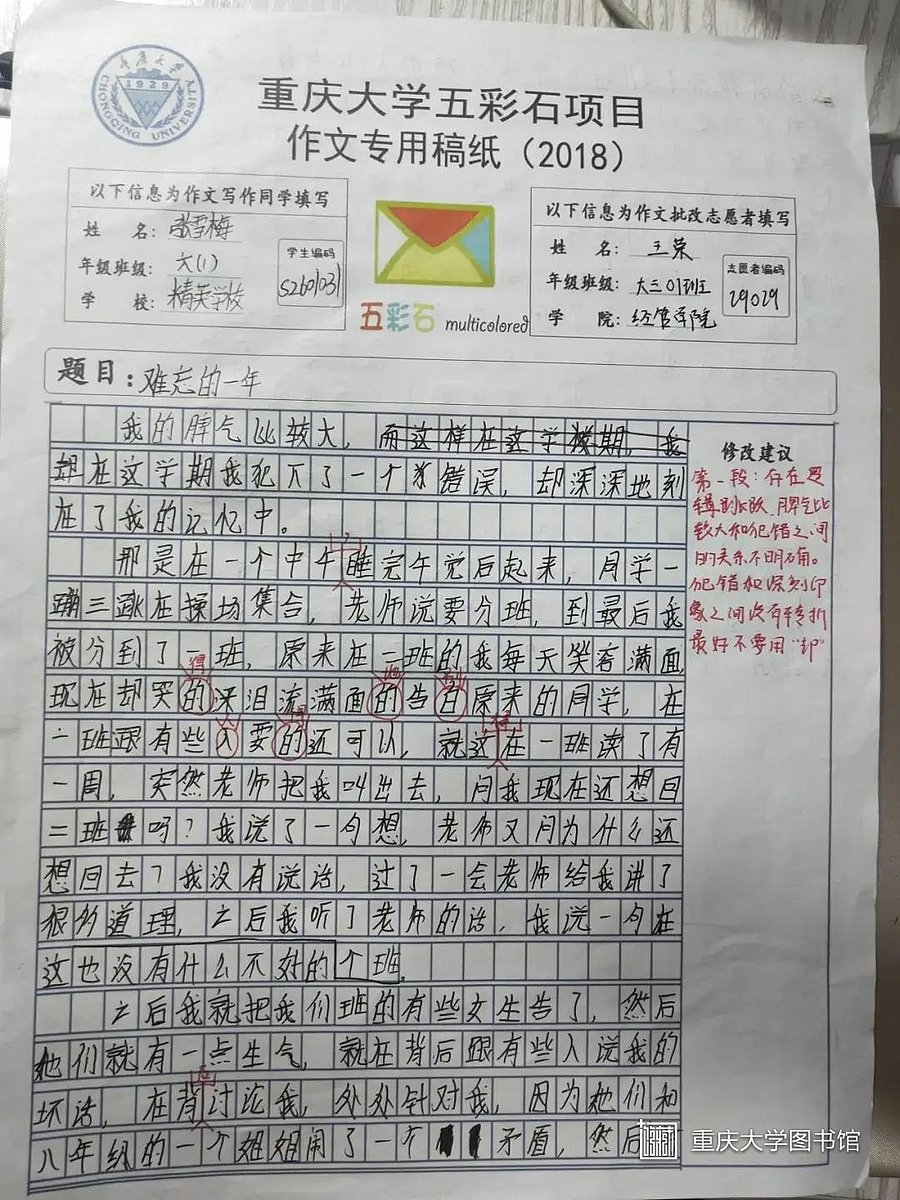 重庆大学
1929
CHONGQING UNIVERSITY
重庆大学五彩石项目
作文专用稿纸（2018）
以下信息为作文写作同学填写
姓 名：张雪梅
年级班级：六(1)
学 校：精英学校
学生编码
S260103
五彩石 multicolored
以下信息为作文批改志愿者填写
姓 名：王荣
年级班级：大三01班
学 院：经管学院
志愿者编码
29029
题目：难忘的一年
我的脾气比较大，而这样在这学期，我
却在这学期我犯下了一个错误，却深深地刻
在了我的记忆中。
那是在一个中午睡完午觉后起来，同学一
蹦三跳在操场集合，老师说要分班，到最后我
被分到了一班，原来在一班的我每天笑容满面
现在却哭的泪流满面的告百原来的同学，在
一班跟有些人要的还可以，就这在一班读了有
一周，突然老师把我叫出去，问我现在还想回
二班吗？我说了一句想，老师又问为什么还
想回去？我没有说话，过了一会老师给我讲了
很多道理，之后我听了老师的话，我说一句在
这也没有什么不好的个班。
之后我就把我们班的有些女生告了，然后
她们就有一点生气，就在背后跟有些人说我的
坏话，在背讨论我，处处针对我，因为她们和
八年级的一个姐姐闹了一个矛盾，然后
得
地
别
得
样
后
修改建议
第一段：存在逻
辑跳跃，脾气比
较大和犯错之间
的关系不明确。
犯错和深刻印
象之间没有转折
最好不要用“却”
重庆大学图书馆